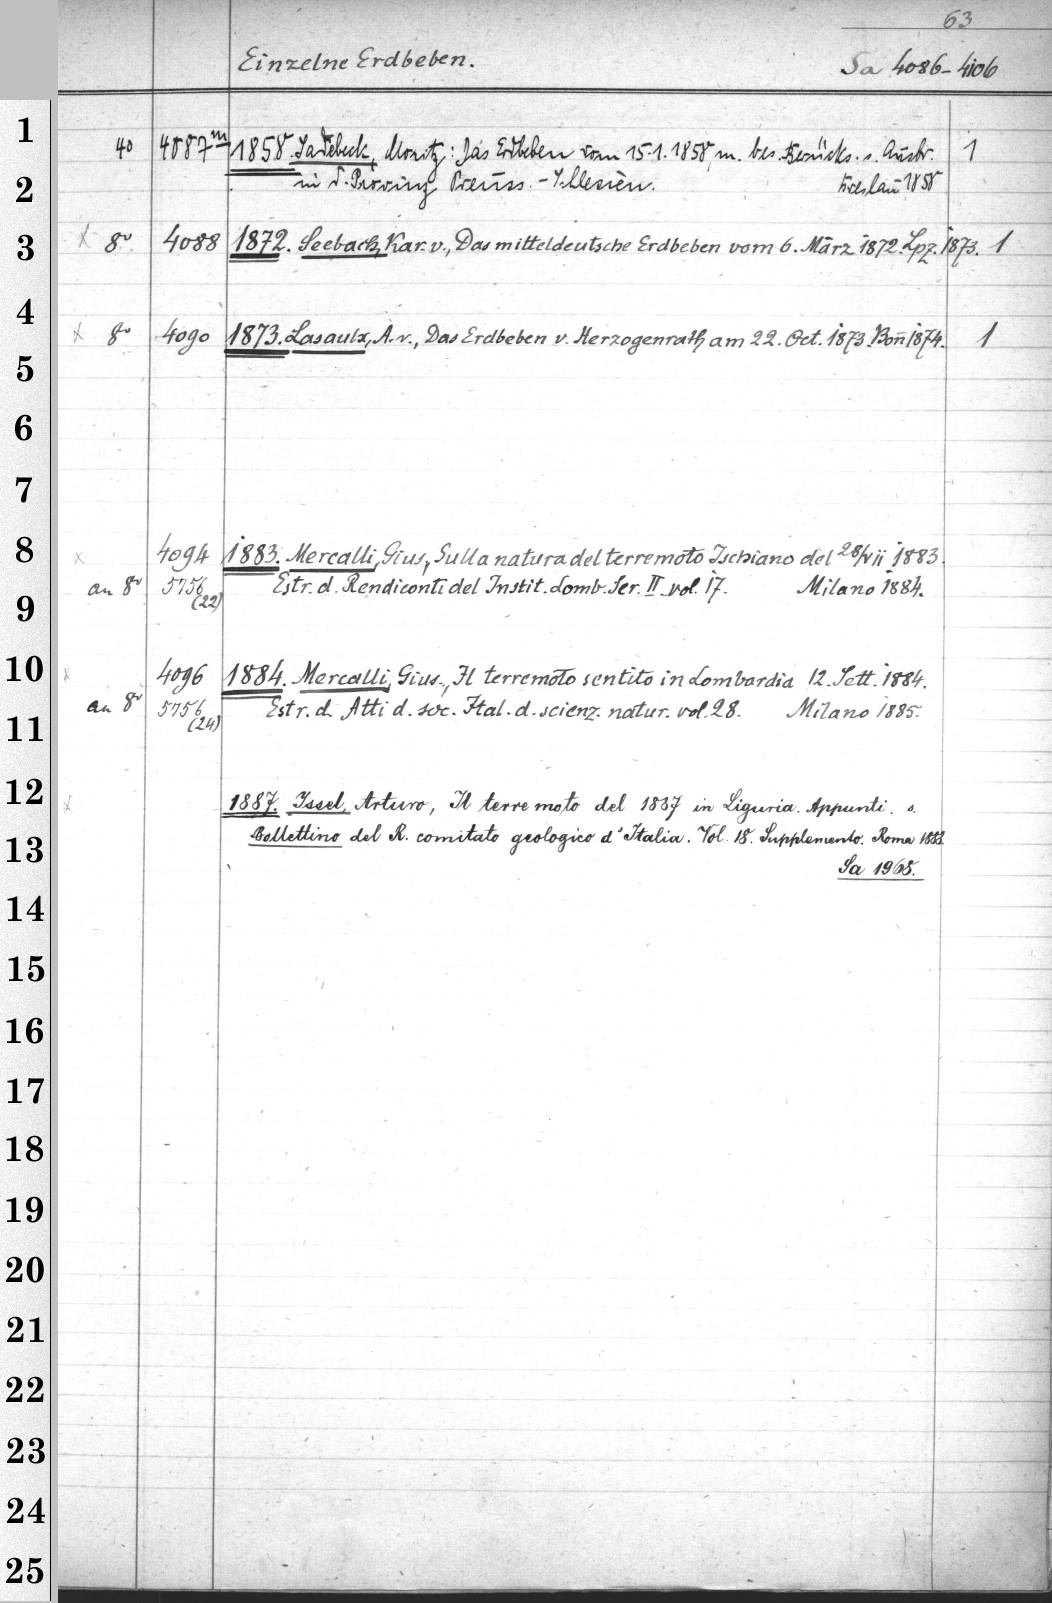 63
Einzelne Erdbeben. Sa 4086-4106
1
4o 4087m 1858. Sadebeck, Moritz: Das Erdbeben vom 15.1.1858 m. bes. Berücks. s. Ausbr. 1
2
in d. Provinz Preuss.-Schlesien. Breslau 1858
3
x 8o 4088 1872. Seebach, Kar. v., Das mitteldeutsche Erdbeben vom 6. März 1872. Lpz. 1873. 1
4
x 8o 4090 1873. Lasaulx, A. v., Das Erdbeben v. Herzogenrath am 22. Oct. 1873. Bonn 1874. 1
5
6
7
8
x 4094 1883. Mercalli, Gius., Sulla natura del terremoto Ischiano del 28/vii 1883.
an 8o 5756 Estr. d. Rendiconti del Instit. Lomb. Ser. II vol. 17. Milano 1884.
9
(22)
10
x 4096 1884. Mercalli, Gius., Il terremoto sentito in Lombardia 12. Sett. 1884.
an 8o 5756 Estr. d. Atti d. soc. Ital. d. scienz. natur. vol. 28. Milano 1885.
11
(24)
12
x 1887. Issel, Arturo, Il terremoto del 1887 in Liguria. Appunti. s.
13
Bollettino del R. comitato geologico d'Italia. Vol. 18. Supplemento. Roma 1888.
Sa 1968.
14
15
16
17
18
19
20
21
22
23
24
25